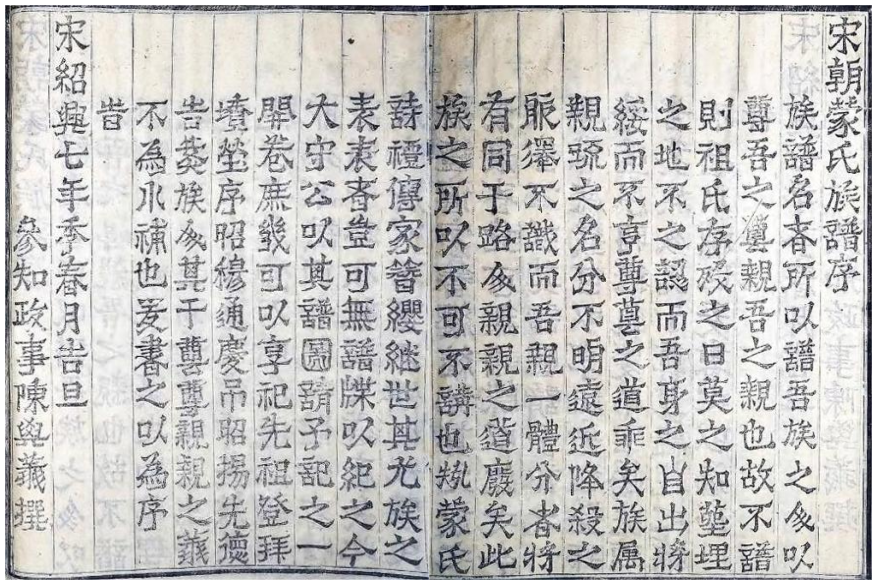 宋朝蒙氏族譜序
族譜名者所以譜吾族之人以
尊吾之尊親吾之親也故不譜
則祖氏存歿之日莫之知塟埋
之地不之認而吾身之自出將
綏而不享尊尊之道乖矣族属
親疏之名分不明遠近降殺之
服不識而吾親一體分者將
有同于路人親親之道廢矣此
族之所以不可不講也矧蒙氏
詩禮傳家簪纓继世其尤族之
表表者豈可無譜牒以紀之今
大守公以其譜圖請予記之一
開卷庶幾可以享祀先祖登拜
墳塋序昭穆通慶吊昭揚先德
吉葬族人其于尊尊親親之義
不為小補也爰書之以為序
旹
宋紹興七年季春月吉旦
參知政事陳與義撰